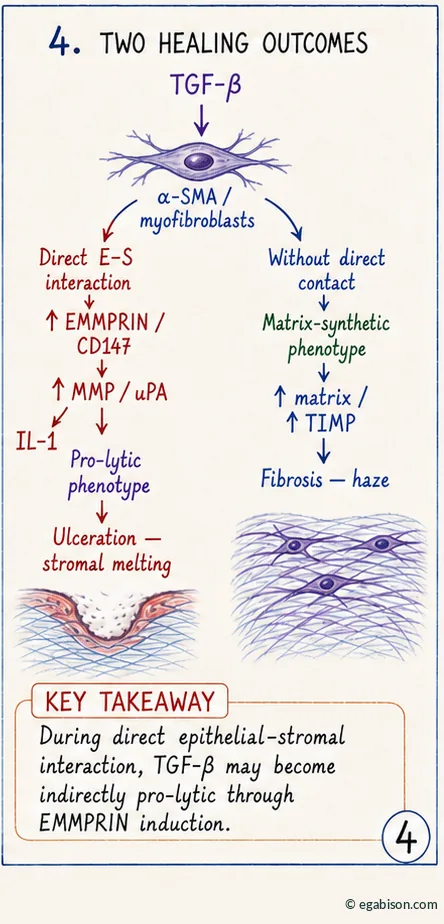 4. TWO HEALING OUTCOMES
TGF-β
α-SMA /
myofibroblasts
Direct E-S
interaction
↑ EMMPRIN /
CD147
↑ MMP / uPA
IL-1
Pro-lytic
phenotype
Ulceration —
stromal melting
Without direct
contact
Matrix-synthetic
phenotype
↑ matrix /
↑ TIMP
Fibrosis — haze
KEY TAKEAWAY
During direct epithelial-stromal
interaction, TGF-β may become
indirectly pro-lytic through
EMMPRIN induction.
4
© egabison.com